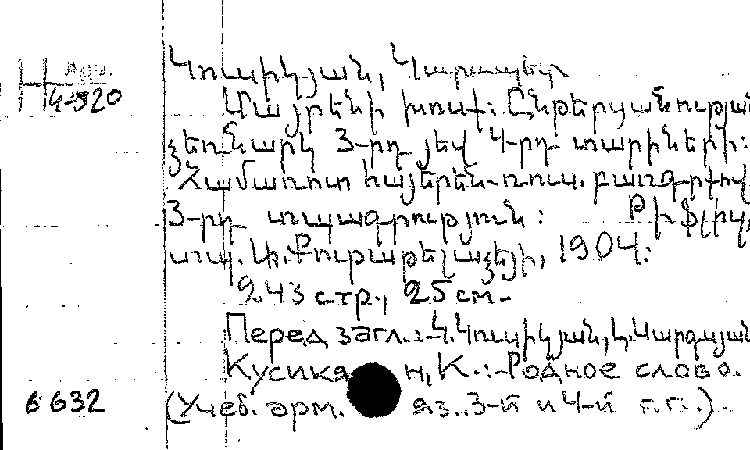 Арм.
Н 4-920
Կուսիկյան, Կարապետ
Մայրենի խոսք: Ընթերցանության
ձեռնարկ 3-րդ յեվ 4-րդ տարիների:
Համառոտ հայերեն-ռուս. բառգրքով
3-րդ տպագրություն: Թիֆլիս,
տպ.
1904.
243 стр., 25 см.
Перед загл.: Կ. Կուսիկյան, Լ.
Кусика н, К.: Родное слово.
6632 (Учеб. арм. яз. 3-й и 4-й г.г.).